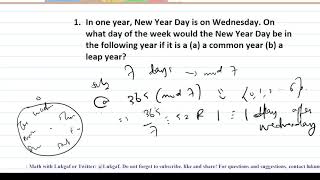 1. In one year, New Year Day is on Wednesday. On
what day of the week would the New Year Day be in
the following year if it is a (a) a common year (b) a
leap year?
7 days → mod 7
(a) 365 (mod 7)
365/7 = 52 R 1 = 1 day after
Wednesday
Math with Lukgaf or Twitter: @Lukgaf. Do not forget to subscribe, like and share! For questions and suggestions, contact